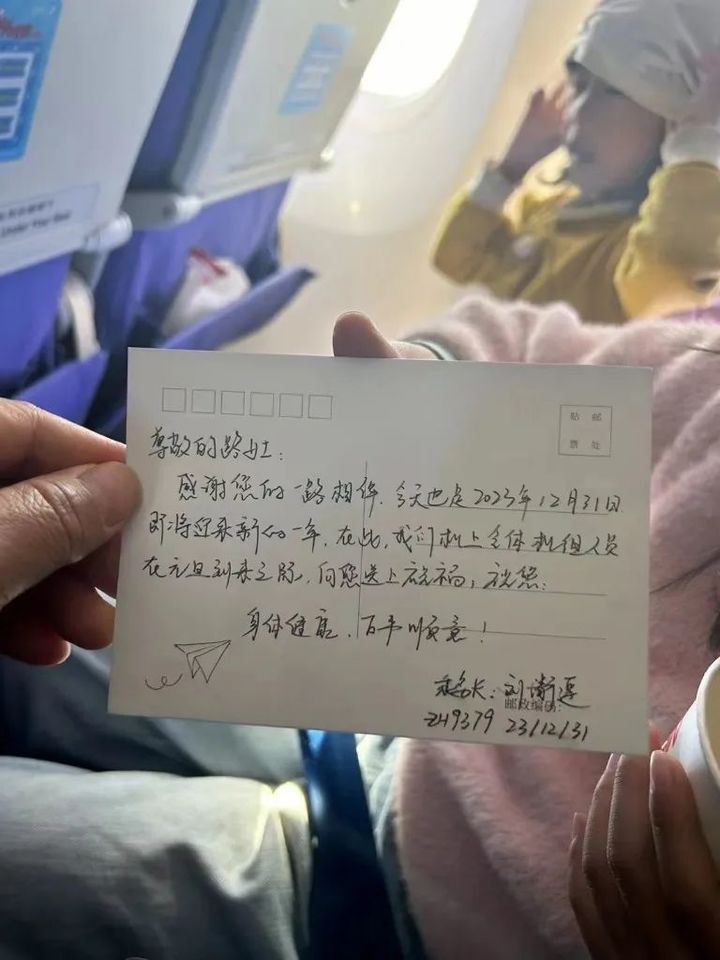 Under Your Seat
贴 邮
票 处
尊敬的路女士:
感谢您的一路相伴,今天也是2023年12月31日
即将迎来新的一年,在此,我们机上全体机组人员
在元旦到来之际,向您送上祝福,祝您:
身体健康,百事顺意!
乘务长:刘
邮政编码:
ZH9379 23/12/31